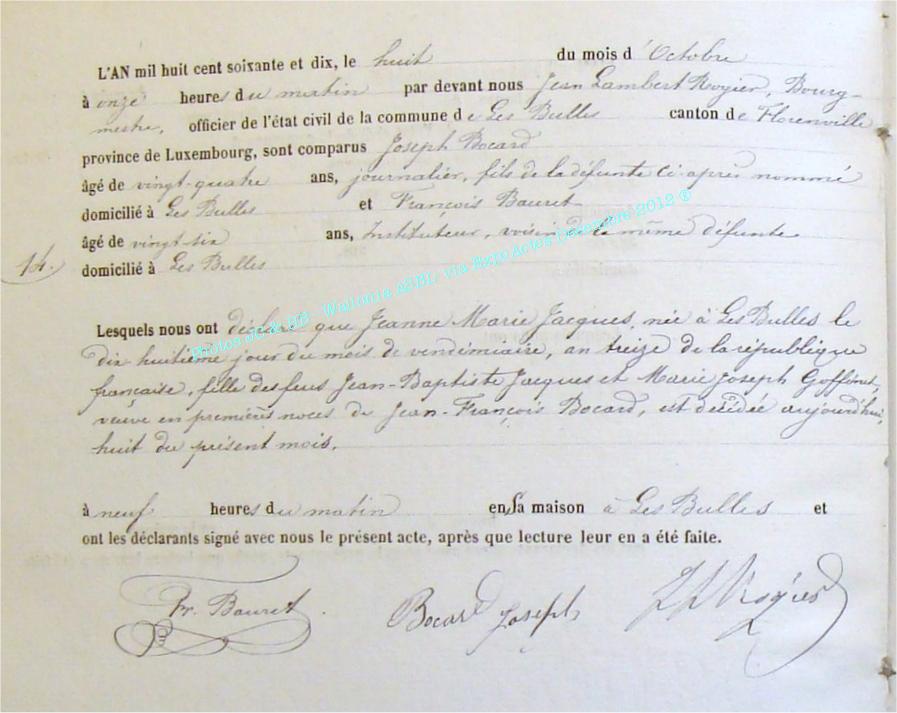 L'AN mil huit cent soixante et dix, le huit du mois d'Octobre
à onze heures du matin par devant nous Jean Lambert Rogier, Bourg-
mestre, officier de l'état civil de la commune de Les Bulles canton de Florenville
province de Luxembourg, sont comparus Joseph Bocard
âgé de vingt-quatre ans, journalier, fils de la défunte ci-après nommé
domicilié à Les Bulles et François Bauret
âgé de vingt-six ans, Instituteur, voisin de la même défunte
14. domicilié à Les Bulles
Lesquels nous ont déclaré que Jeanne Marie Jacques, née à Les Bulles le
dix huitième jour du mois de vendémiaire, an treize de la république
française, fille des feus Jean-Baptiste Jacques et Marie Joseph Goffinet,
veuve en premières noces de Jean-François Bocard, est décédée aujourd'hui,
huit du présent mois.
à neuf heures du matin en sa maison à Les Bulles et
ont les déclarants signé avec nous le présent acte, après que lecture leur en a été faite.
Fr. Bauret. Bocard Joseph JL Rogier
Photos JC & BB - Wallonia aSBL via ExpoActes Décembre 2012 ®